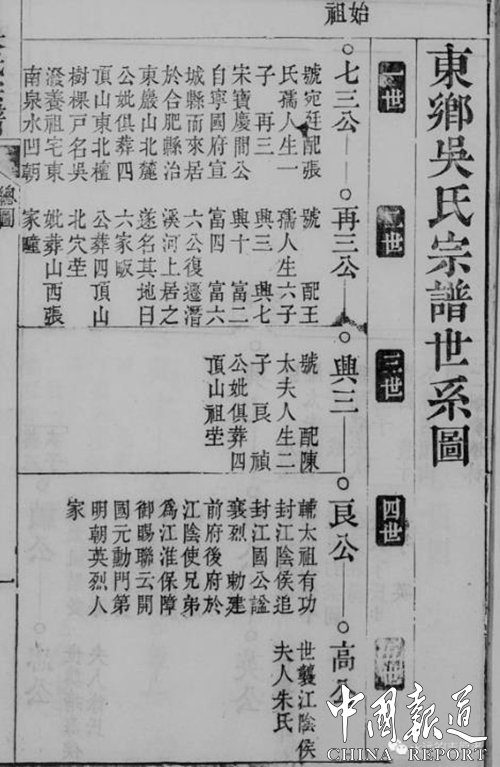 東鄉吳氏宗譜世系圖
始祖
一世
七三公
號宛廷配張
氏孺人生一
子 再三
宋寶慶間公
自寧國府宣
城縣而來居
於合肥縣治
東嚴山北麓
公妣俱葬四
頂山東北檀
樹棵戶名吳
潑養祖宅東
南泉水凹朝
世
再三公
號 配王
孺人生六子
興三 興七
興十 富二
富四 富六
六公復遷潛
溪河上居之
遂名其地曰
六家畈
公葬四頂山
北穴塋
妣葬山西張
家疃
三世
興三
號 配陳
太夫人生二
子 良 禎
公妣俱葬四
頂山祖塋
四世
良公
輔太祖有功
封江陰侯追
封江國公諡
襄烈 勅建
前府後府於
江陰使兄弟
爲江淮保障
御賜聯云開
國元勳門第
明朝英烈人
家
世
高公
世襲江陰侯
夫人朱氏
總圖
中國報道
CHINA REPORT